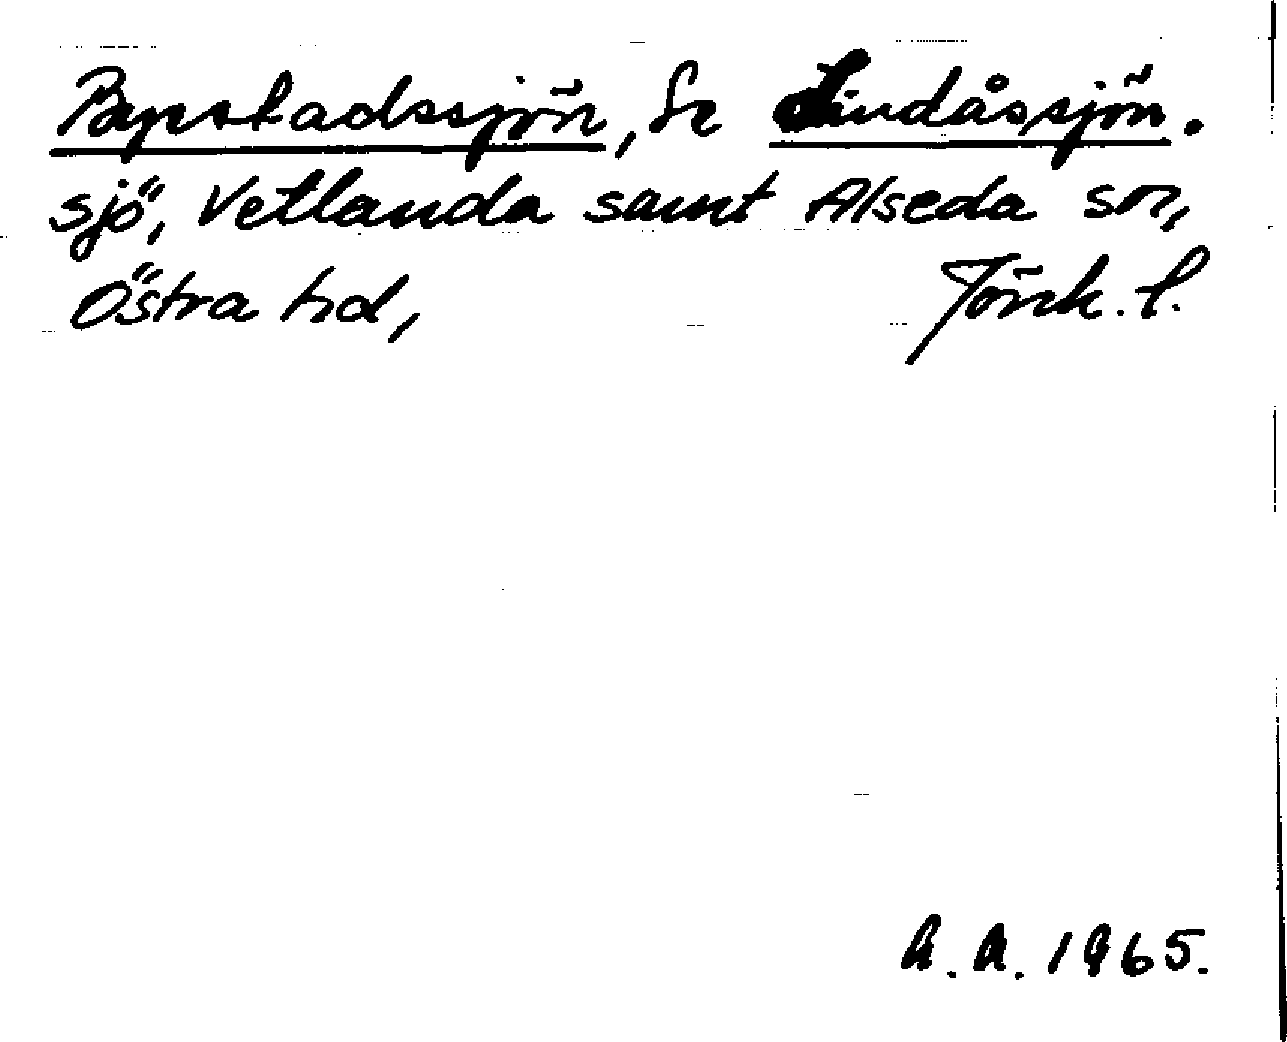 Repstadssjön, Se Lindåssjön.
sjö, Vetlanda samt Alseda srr,
Östra hd, Jönk. l.
A. A. 1965.